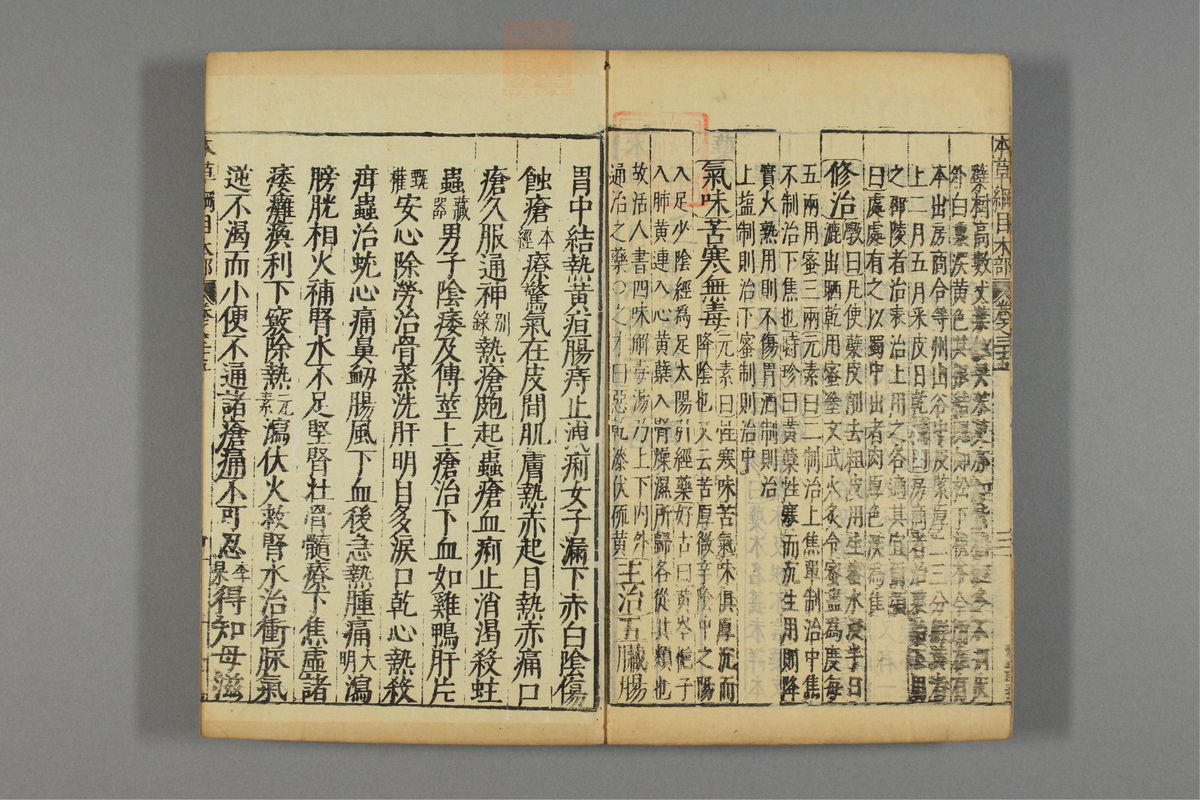 本草綱目木部 卷之三十五
本出房商合等州山谷中皮緊厚二三分
上二月五月采皮日乾
之邵陵者治家治上用之各適其宜
曰處處有之以蜀中出者肉厚色深為佳
修治 斅曰凡使蘗皮削去粗皮用生蜜水浸半日
漉出晒乾用蜜塗文武火炙令蜜盡為度每
五兩用蜜三兩元素曰二制治上焦單制治中焦
不制治下焦也時珍曰黃蘗性寒而沉生用則降
實火熟用則不傷胃酒制則治
上塩制則治下蜜制則治中
氣味苦寒無毒 元素曰性寒味苦氣味俱厚沉而
降陰也又云苦厚微辛陰中之陽
入足少陰經為足太陽引經藥好古曰黃芩梔子
入肺黃連入心黃蘗入腎燥濕所歸各從其類也
故活人書四味解毒湯乃上下內外
通治之藥○之才曰惡乾漆伏硫黃 主治五臟腸
胃中結熱黃疸腸痔止洩痢女子漏下赤白陰傷
蝕瘡本經療驚氣在皮間肌膚熱赤起目熱赤痛口
瘡久服通神別錄熱瘡皰起蟲瘡血痢止消渴殺蛀
蟲藏器男子陰痿及傅莖上瘡治下血如雞鴨肝片
甄權安心除勞治骨蒸洗肝明目多淚口乾心熱殺
疳蟲治蚘心痛鼻衂腸風下血後急熱腫痛大明瀉
膀胱相火補腎水不足堅腎壯骨髓療下焦虛諸
痿癱瘓利下竅除熱元素瀉伏火救腎水治衝脉氣
逆不渴而小便不通諸瘡痛不可忍李杲得知母滋